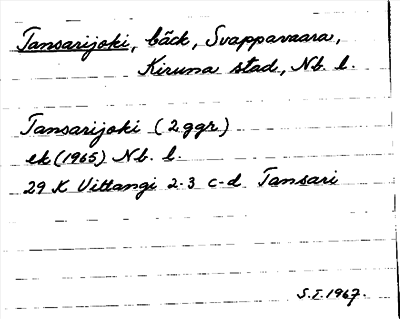 Tansarijoki, bäck, Svappavaara,
Kiruna stad, Nb. l.
Tansarijoki (2 ggr)
ek (1965) Nb. l.
29 K Vittangi 2-3 c-d Tansari
S.I. 1967.